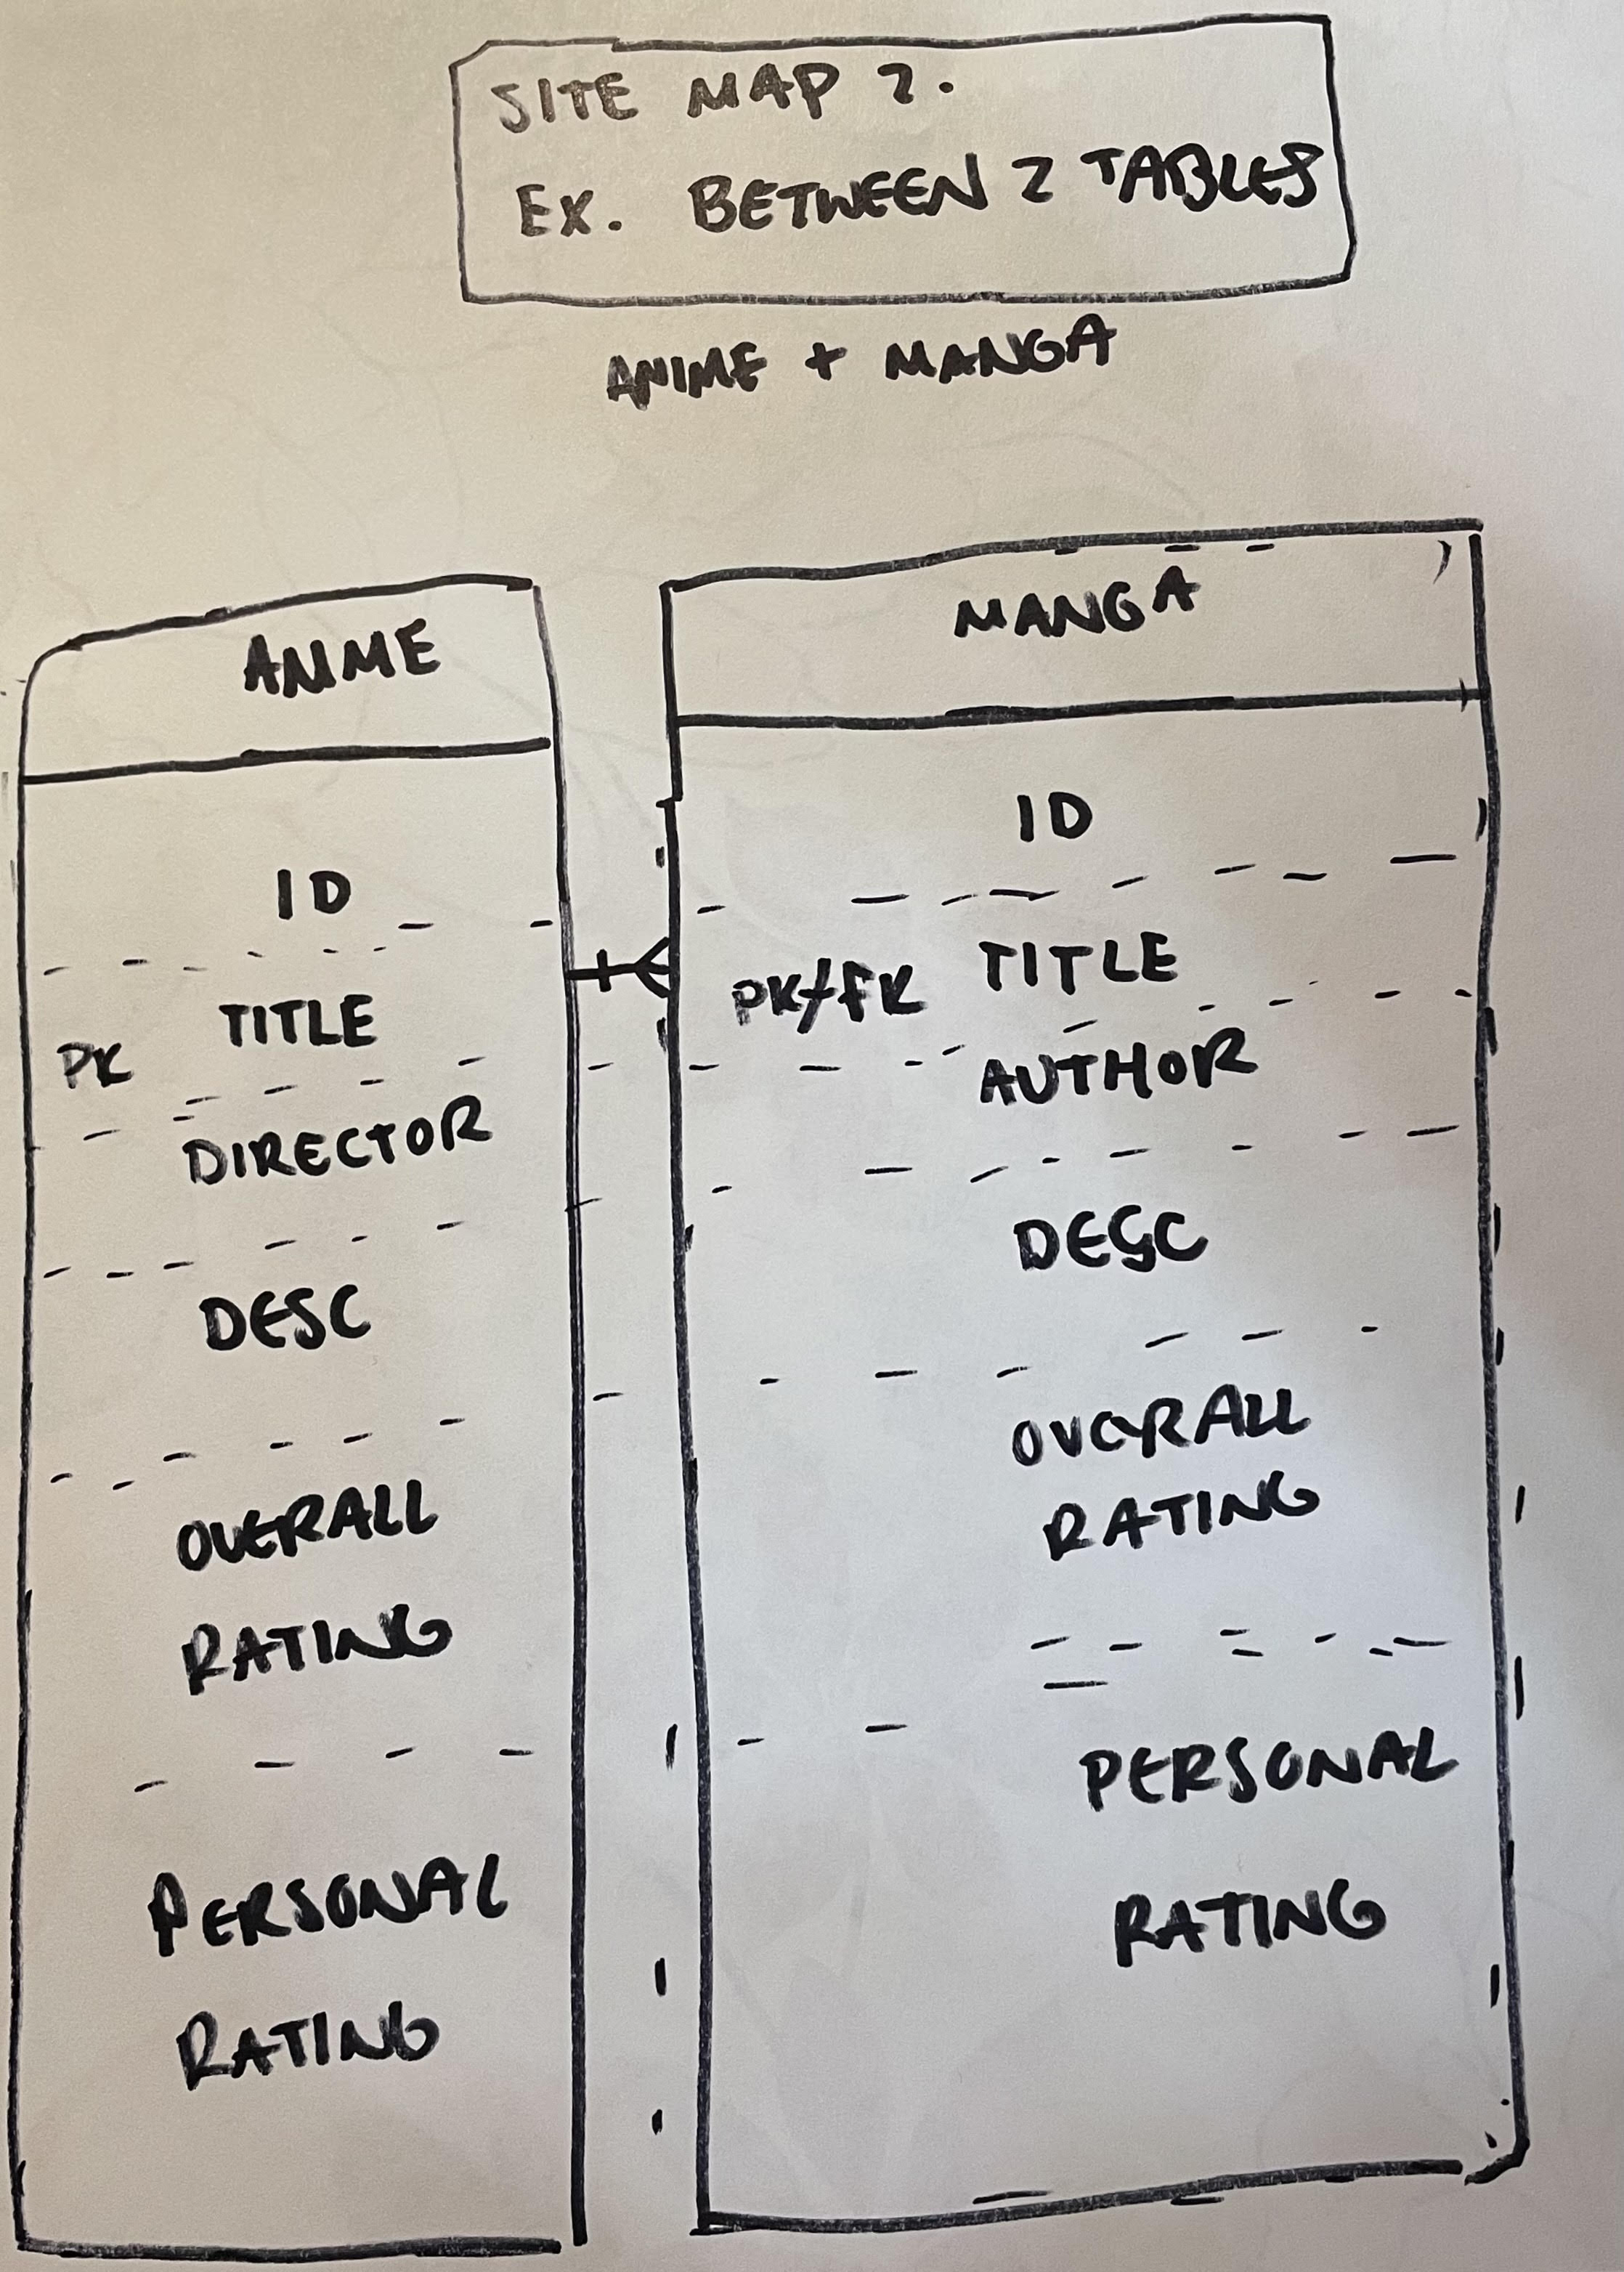 SITE MAP 2.
EX. BETWEEN 2 TABLES
ANIME + MANGA
ANIME
ID
TITLE
PK
DIRECTOR
DESC
OVERALL
RATING
PERSONAL
RATING
MANGA
ID
PK/FK TITLE
AUTHOR
DESC
OVERALL
RATING
PERSONAL
RATING